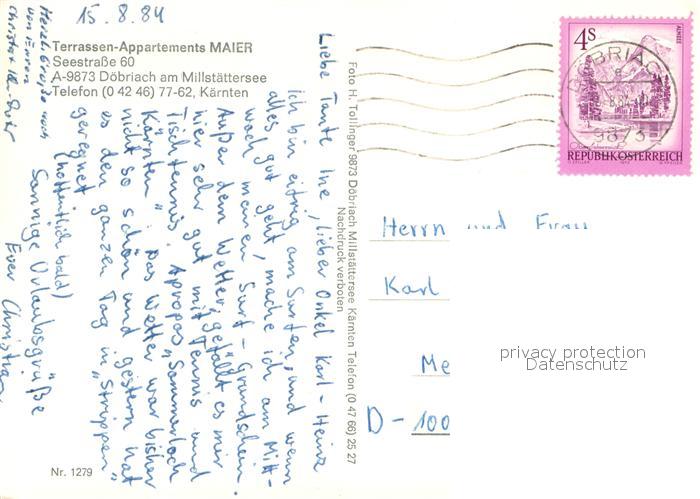 15.8.84
Terrassen-Appartements MAIER
Seestraße 60
A-9873 Döbriach am Millstättersee
Telefon (0 42 46) 77-62, Kärnten
Liebe Tante Ine, lieber Onkel Karl-Heinz
ich bin eifrig am Surfen, und wenn
alles gut geht, mache ich am Mitt-
woch meinen „Surf-Grundschein".
Außer dem Wetter, gefällt es mir
hier sehr gut mit Tennis und
Tischtennis. Apropos „Sommerloch
Kärnten". Das Wetter war bisher
nicht so schön und gestern hat
es den ganzen Tag in „Strippen"
geregnet.
(hoffentlich bald)
Sonnige Urlaubsgrüße
Euer Christian
Herzl. Grüße auch
von
Foto H. Tollinger 9873 Döbriach Millstättersee Kärnten Telefon (0 47 66) 25 27
Nachdruck verboten
Nr. 1279
4s
ALMSEE
REPUBLIK ÖSTERREICH
DÖBRIACH
9873
Herrn und Frau
Karl
Me
D-100
privacy protection
Datenschutz